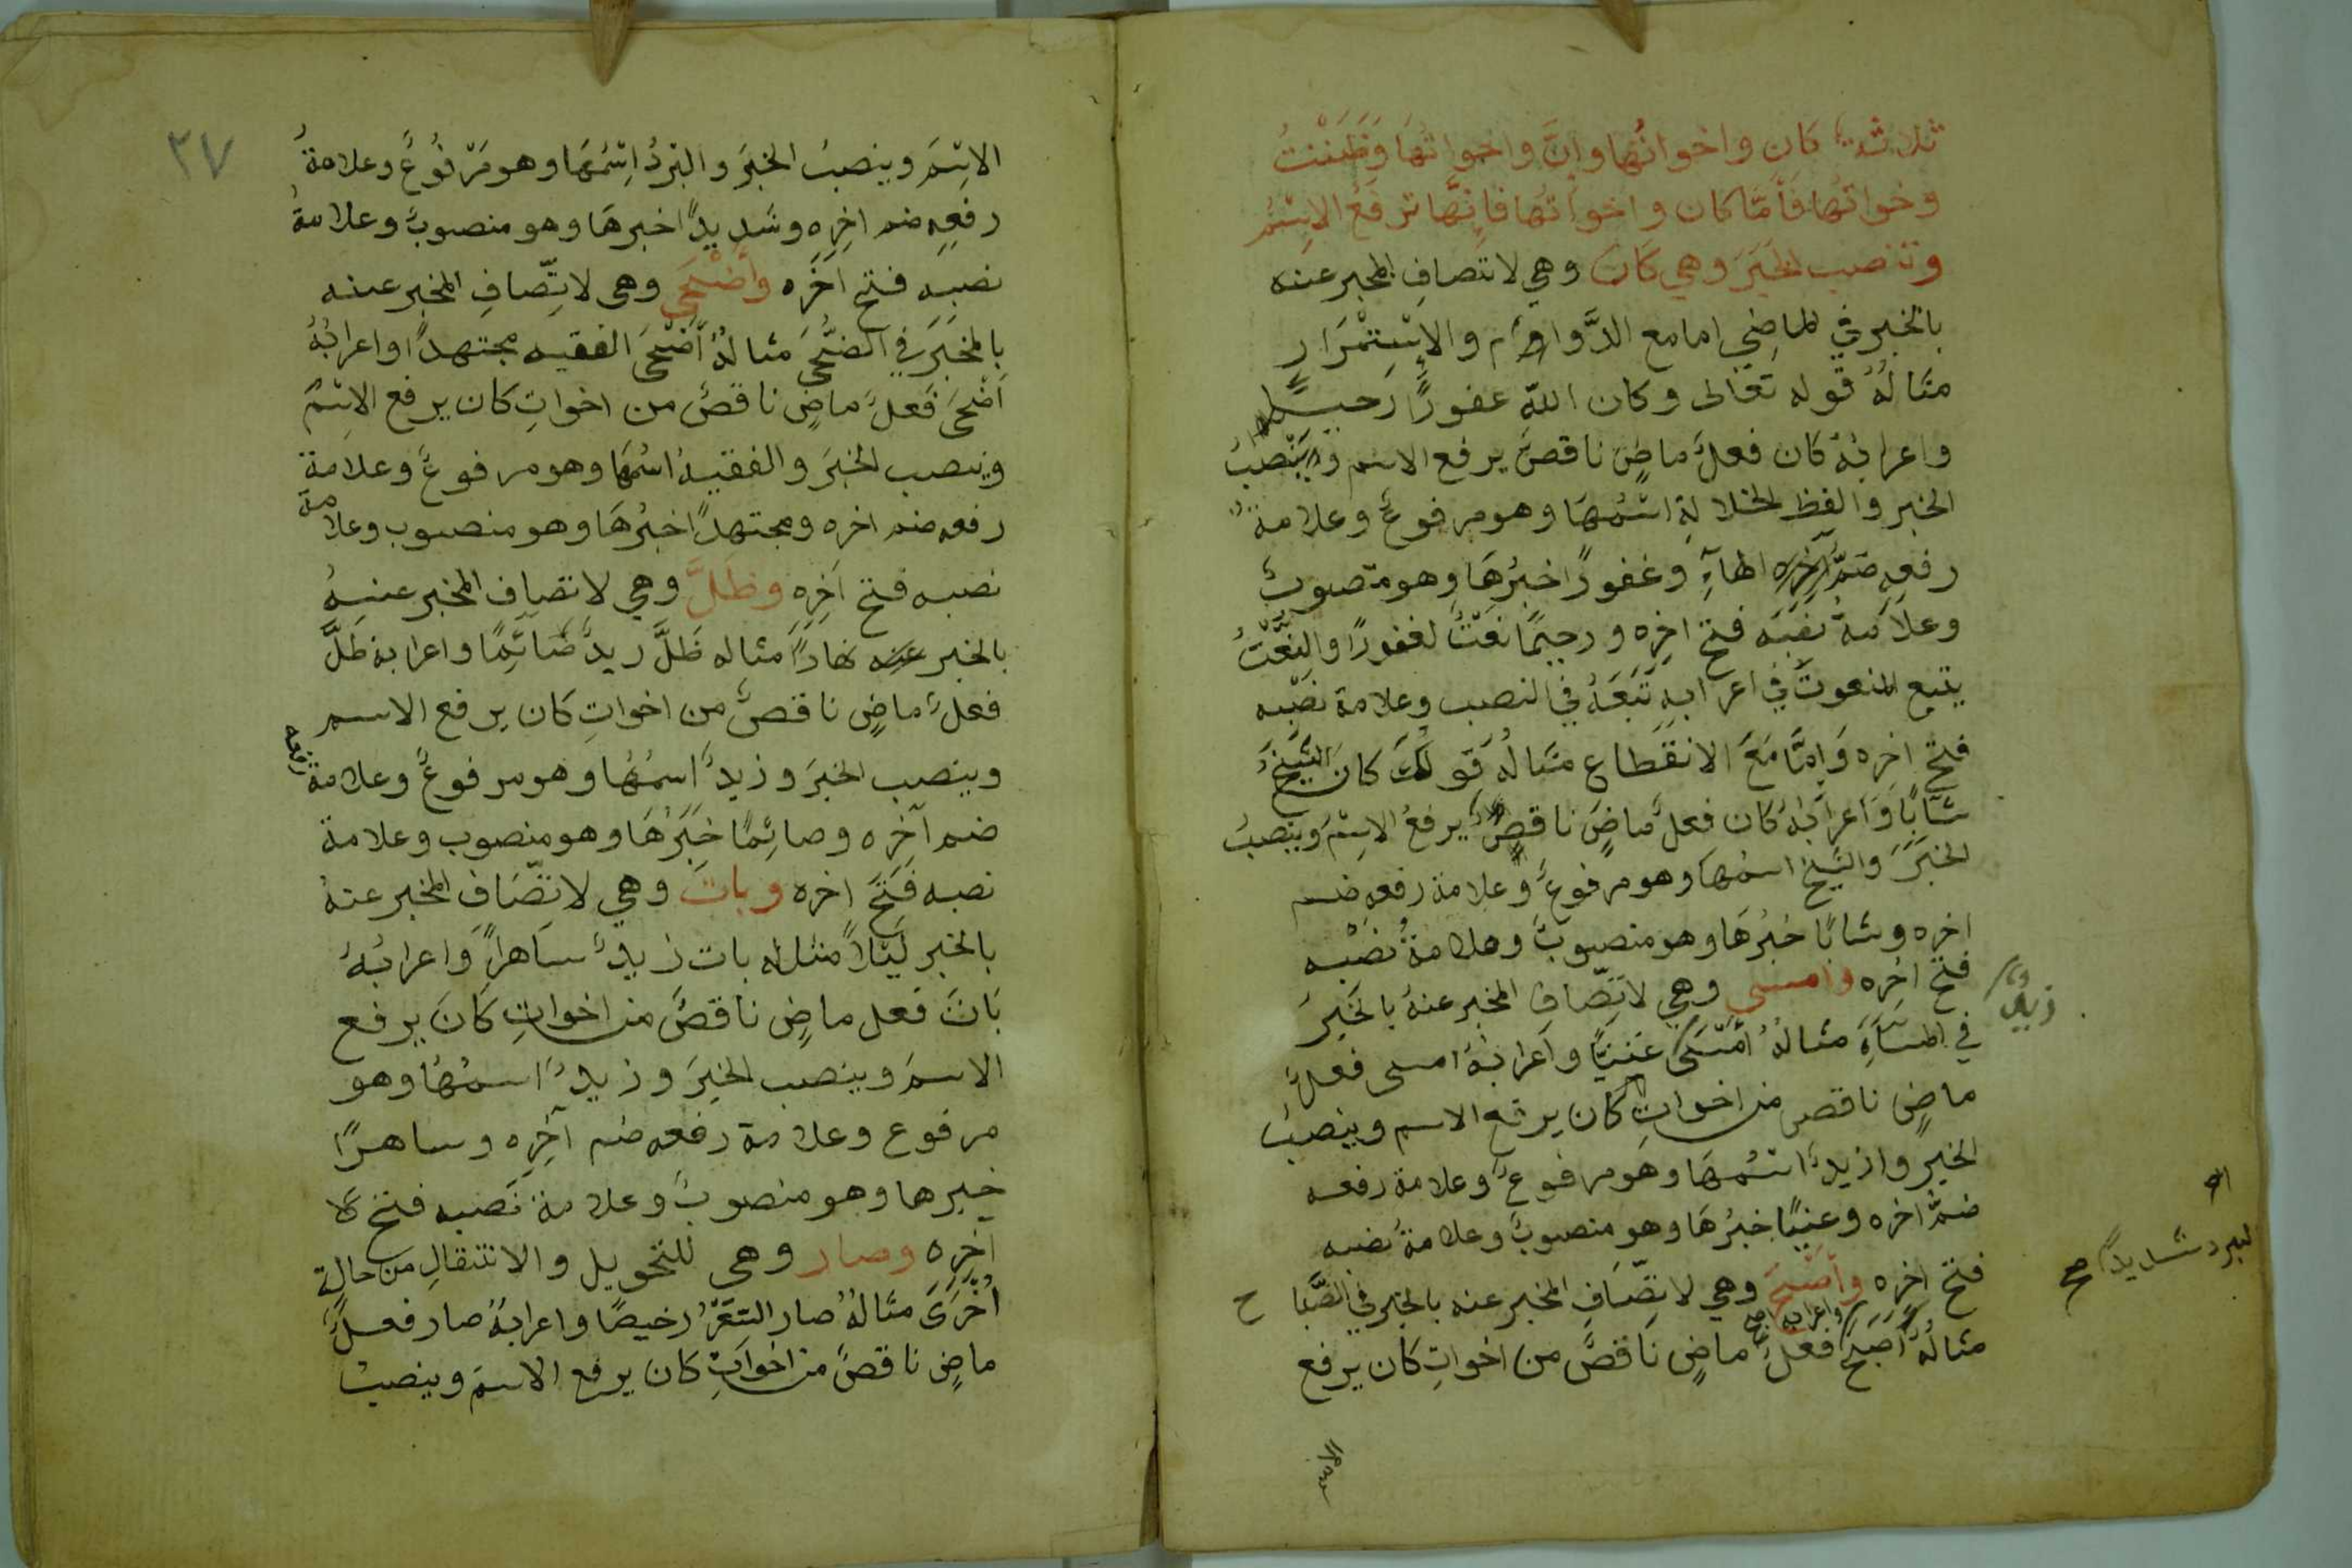 ثلاثة كان واخواتُها وانَّ واخواتُها وَظَنَنْتُ
وخواتُها فَأمَّا كان واخواتُها فَإنَّها ترفَعُ الاِسْمُ
وتنصب الخَبَرَ وهي كَانَ وهي لاتصافِ المخبر عنه
بالخبر في الماضِي اما مع الدَّوام والاِسْتِمْرَارِ
مثالُهُ قوله تعَالى وكان اللّه غفورًا رَحيمًا
واعرابُهُ كان فعلٌ ماضٍ ناقصٌ يرفع الاسم وَيَنْصبُ
الخبر والفظ الخلالةِ اسْمُهَا وهو مرفوعٌ وعلامةُ
رفعِهِ ضَمُّ الهآءِ وغفورًا خبرُهَا وهو منصوبٌ
وعلَامةُ نصَبَه فتح اخِرِه ورحيمًا نعْتٌ لغفورًا والنَّعْتُ
يتبع المنعوتَ في اعرابهِ تَبَعَهُ في النصب وعلامة نصْبه
فتحُ اخرِه وَإمَّا مَعَ الانقطاع مثالُهُ قولكَ كانَ الشَيْخُ
شَابًا وَاعرابُهُ كان فعلٌ ماضٍ ناقصٌ يرفعُ الاِسْمَ وينصبُ
الخبَرَ والشيخ اسمُها وهو مرفوعٌ وعلامة رفعه ضم
اخره وشابًا خبرُهَا وهو منصوبٌ وعلامةُ نصْبه
فتح اخرِه وامسى وهي لاتِّصافِ المخبر عنهُ بالخَبِرَ
في المسَآءِ مثالُهُ أمْسَى زيدٌ غَنيًّا واعرابُهُ امسى فعلٌ
ماضٍ ناقص من اخواتِ كان يرفع الاسم وينصبُ
الخبر وازيدٌ اسْمُهَا وهو مرفوعٌ وعلامة رفعه
ضمُّ اخره وغنيًا خبرُهَا وهو منصوبٌ وعلامةُ نصبه
فتح اخرِه وأصْبَحَ وهي لاتِّصَافِ المخبر عنه بالخبر في الصَّبَاح
مثالُهُ أصبَحَ البرد شديدًا صح واعرابه اصبح فعلٌ ماضٍ ناقصٌ من اخواتِ كان يرفع
٢٧
الاِسْمَ وينصبُ الخبَرَ والبَرْدُ اِسْمُهَا وهو مَرْفُوعٌ وعلامةُ
رفعِهِ ضم اخِرِه وشَديدًا خبرهَا وهو منصوبٌ وعلامةُ
نصبِهِ فتح اخَرِه وأضْحَى وهي لاتِّصافِ المخبر عنه
بِالخبَرَ في الضُّحَى مثالُهُ أضْحَى الفقيه مجتهدًا واعرابُهُ
اضْحَى فَعلٌ ماضٍ ناقصٌ من اخواتِ كان يرفع الاِسْمَ
وينصب الخبَرَ والفقيهُ اسْمُهَا وهو مرفوعٌ وعلامة
رفعه ضم اخره ومجتهدًا خبرُهَا وهو منصوب وعلامة
نصبه فتح آخِرِهِ وظَلَّ وهي لاتصافِ المخبر عنهُ
بالخبر نهارًا مثاله ظَلَّ زيدٌ صَائِمًا واعرابه ظَلَّ
فعلٌ ماضٍ ناقصٌ من اخواتِ كان يرفع الاسم
وينصب الخبرَ وزيدٌ اسمُهُا وهو مرفوعٌ وعلامة رفعه
ضم آخِرِه وصائِمًا خبَرُهَا وهو منصوب وعلامة
نصبه فَتْحَ اخره وباتَ وهي لاتّصَافِ المخبر عنهُ
بالخبر لَيْلاً مثاله بات زيدٌ سَاهرًا وَاعرابُهُ
بَاتَ فَعل ماضٍ ناقصٌ من اخواتِ كَانَ يرفع
الاسمَ وينصب الخبرَ وزيدٌ اسمُهُا وهو
مرفوع وعلامة رفعه ضم آخِرِه وساهرًا
خبرها وهو منصوبٌ وعلامة نَصبه فتح
آخِرِه وصار وهي للتحويل والانتقالِ من حالة
أخْرَى مثالُهُ صار السّعْرُ رخيصًا واعرابُهُ صار فعلٌ
ماضٍ ناقصٌ من اخواتِ كان يرفع الاسمَ وينصبُ